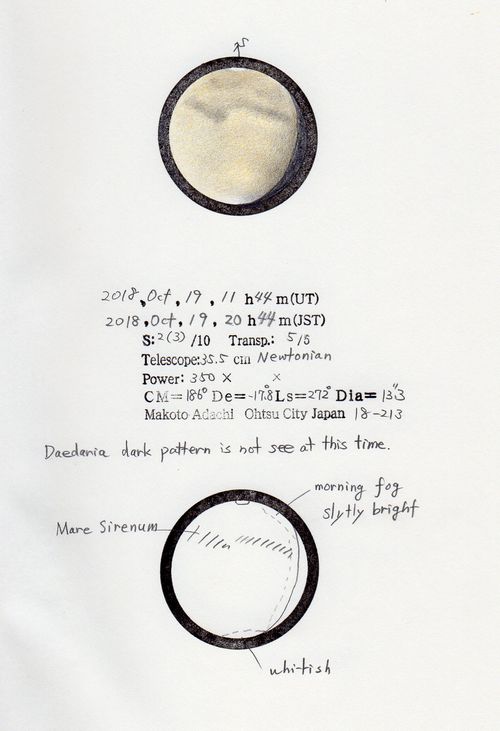 S
2018, Oct, 19, 11 h44 m(UT)
2018, Oct, 19, 20 h44 m(JST)
S: 2(3) /10 Transp.: 5/5
Telescope: 35.5 cm Newtonian
Power: 350 × ×
CM=186° De=-17.8° Ls=272° Dia= 13".3
Makoto Adachi Ohtsu City Japan 18-213
Daedaria dark pattern is not see at this time.
morning fog
slytly bright
Mare Sirenum
whitish